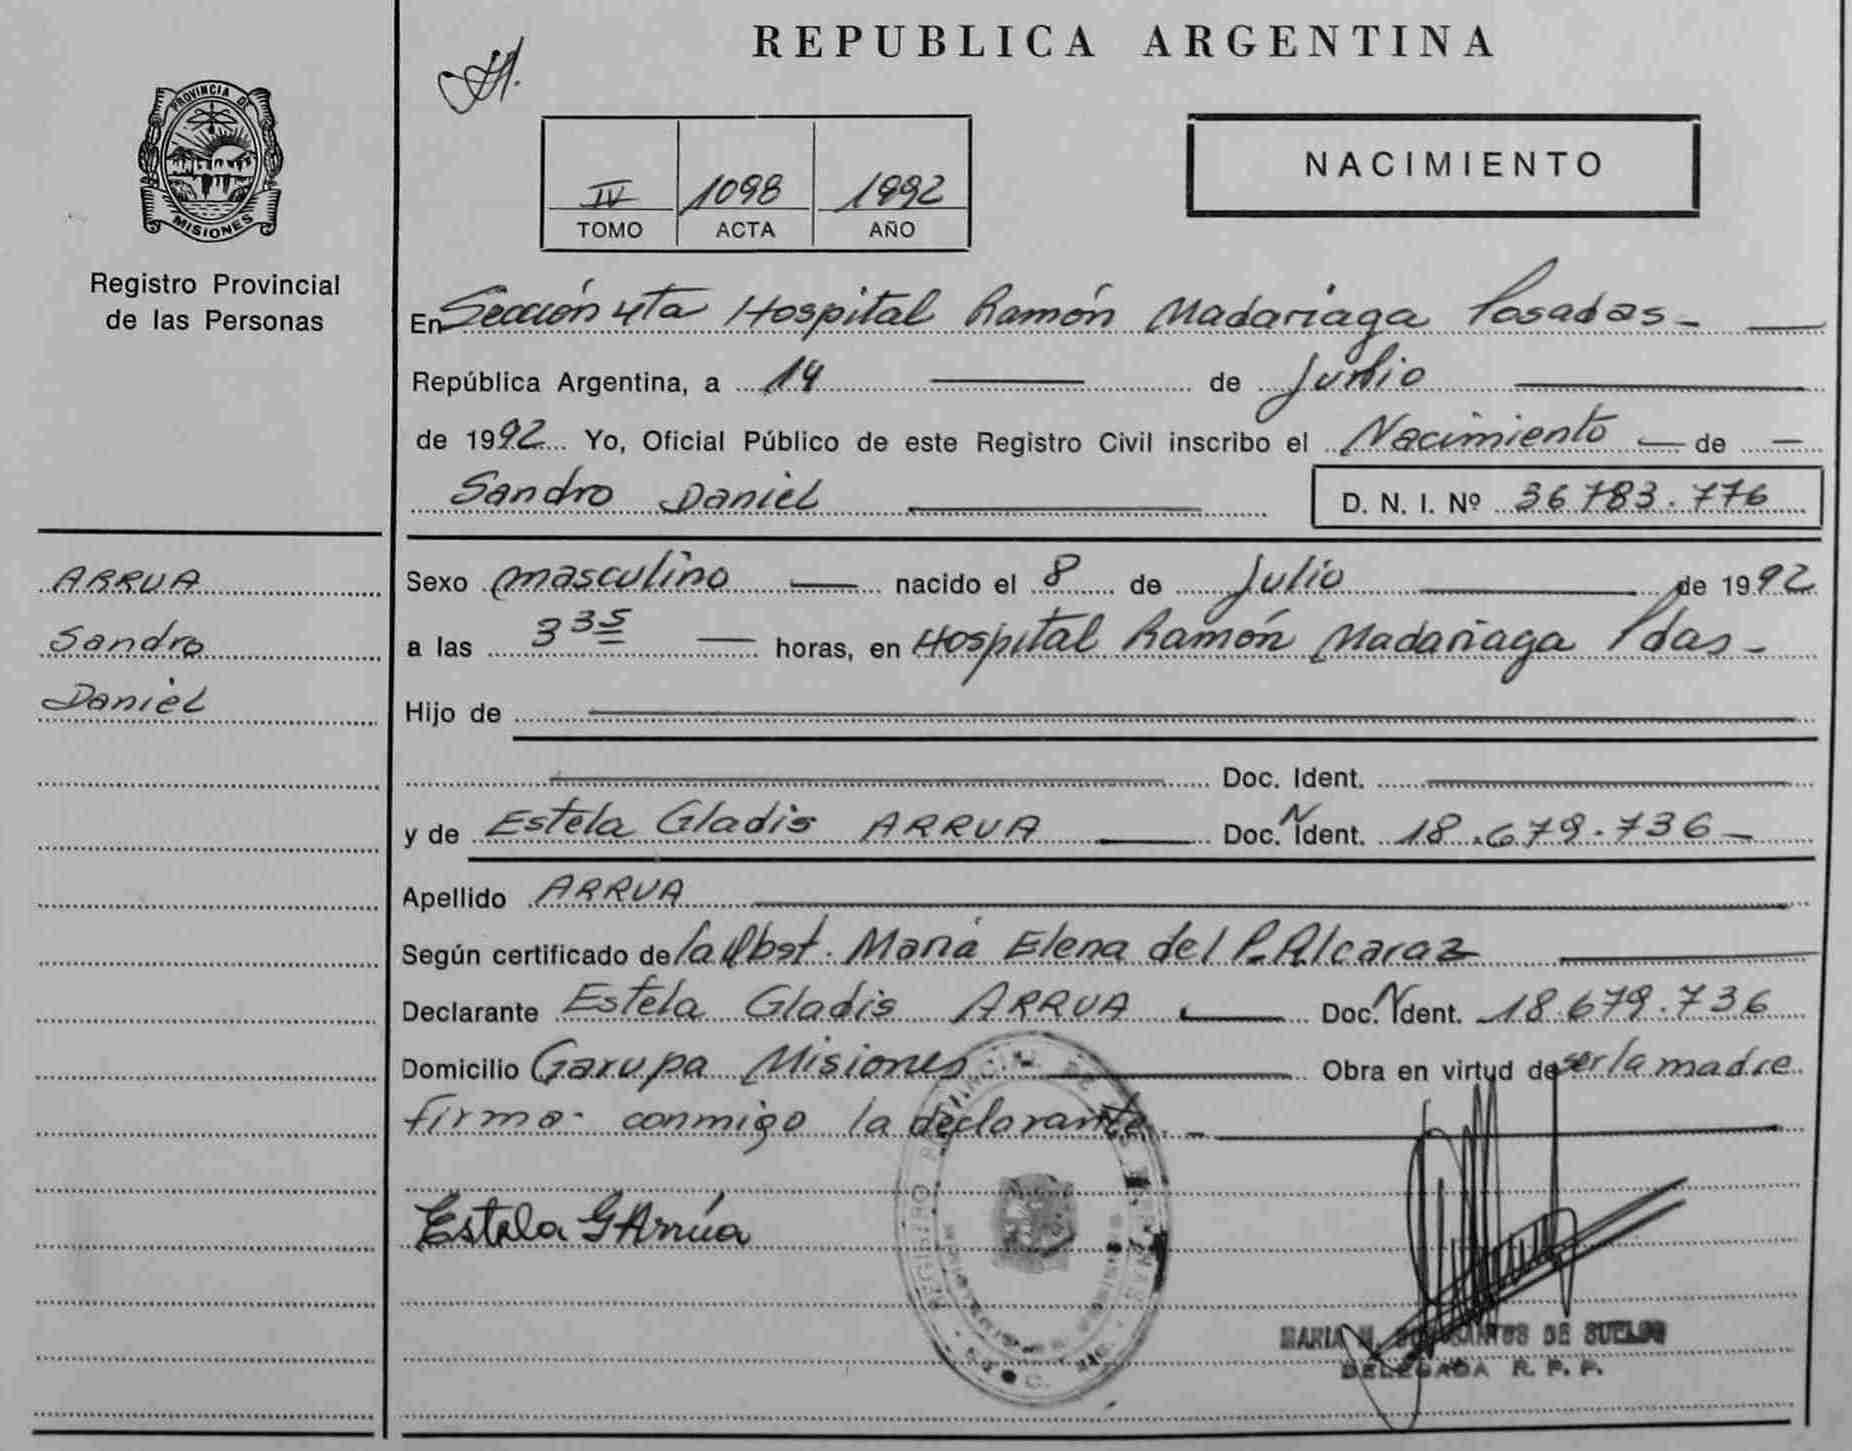 REPUBLICA ARGENTINA
PROVINCIA DE
MISIONES
Registro Provincial
de las Personas
IV 1098 1992
TOMO ACTA AÑO
NACIMIENTO
En Sección 4ta Hospital Ramón Madariaga Posadas -
República Argentina, a 14 de Julio
de 1992 Yo, Oficial Público de este Registro Civil inscribo el Nacimiento de
Sandro Daniel D. N. I. Nº 36783.776
ARRUA
Sandro
Daniel
Sexo masculino nacido el 8 de Julio de 1992
a las 3 35 horas, en Hospital Ramón Madariaga Pdas -
Hijo de
Doc. Ident.
y de Estela Gladis ARRUA Doc. N Ident. 18.679.736 -
Apellido ARRUA
Según certificado de la Obst. María Elena del P. Alcaraz
Declarante Estela Gladis ARRUA Doc. N Ident. 18.679.736
Domicilio Garupa Misiones Obra en virtud de ser la madre
firma conmigo la declarante. -
Estela G Arrúa
MARIA DOS SANTOS DE SUELDO
DELEGADA R. P. P.